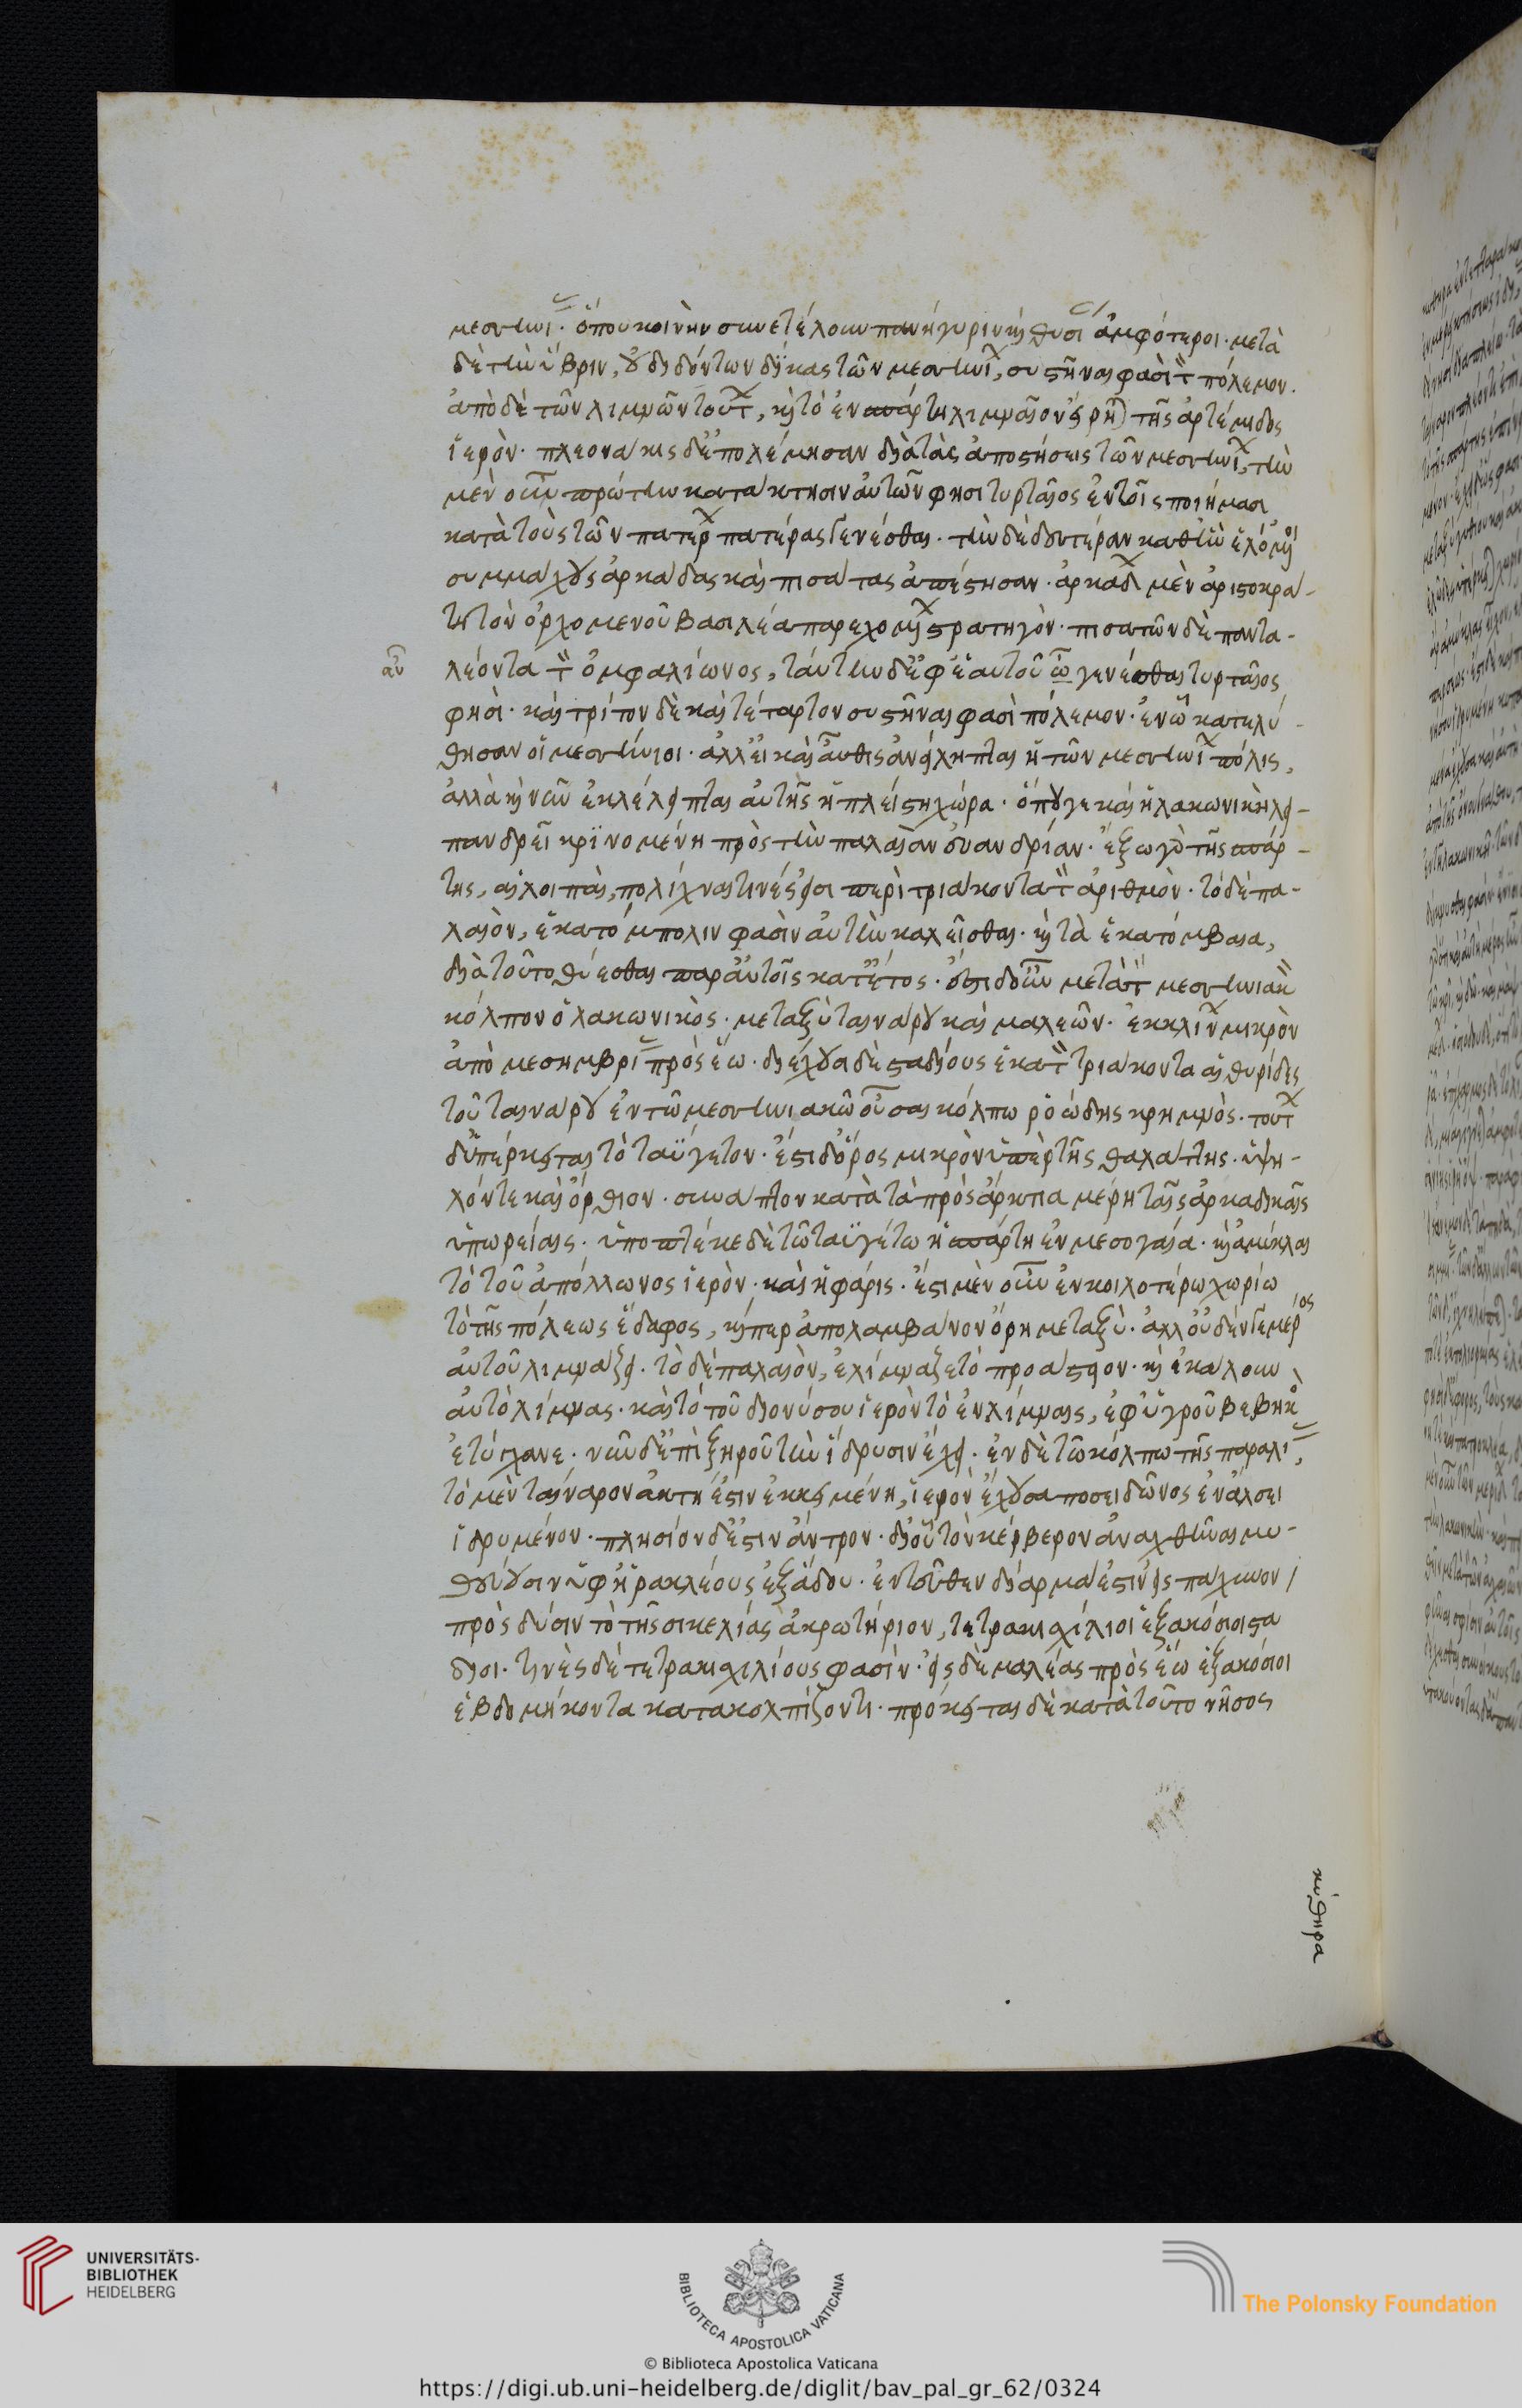 μεσσηνί. ὅπου κοινὴν συνετέλουν πανήγυριν καὶ θυσί ἀμφότεροι. μετὰ
δὲ τὴν ὕβριν, οὐ διδόντων δίκας τῶν μεσσηνί, συστῆναι φασὶ τ πόλεμον.
ἀπὸ δὲ τῶν λιμνῶν τούτ, καὶ τὸ ἐν σπάρτη λιμναῖον εἴρη τῆς ἀρτέμιδος
ἱερόν. πλεονάκις δ' ἐπολέμησαν διὰ τὰς ἀποστήσεις τῶν μεσσηνί, τὴν
μὲν οὖν πρώτην κατάκτησιν αὐτῶν φησι τυρταῖος ἐν τοῖς ποιήμασι
κατὰ τοὺς τῶν πατέρ πατέρας γενέσθαι. τὴν δὲ δευτέραν καθ' ἣν ἑλόμ
συμμάχους ἀρκάδας καὶ πισάτας ἀπέστησαν. ἀρκάδ μὲν ἀριστοκρά-
τη τὸν ὀρχομενοῦ βασιλέα παρεχομ στρατηγόν. πισατῶν δὲ παντα-
λέοντα τ ὀμφαλίωνος, ταύτην δ' ἐφ' ἑαυτοῦ ω γενέσθαι τυρταῖος
αὐ
φησι. καὶ τρίτον δὲ καὶ τέταρτον συστῆναι φασὶ πόλεμον. ἐν ὧ κατελύ-
θησαν οἱ μεσσήνιοι. ἀλλ' εἰ καὶ αὖθις ἀνείληπται ἡ τῶν μεσσηνί πόλις,
ἀλλὰ καὶ νῦν ἐκλέλειπται αὐτῆς ἡ πλείστη χώρα. ὅπου γε καὶ ἡ λακωνικὴ λει-
πανδρεῖ κρινομένη πρὸς τὴν παλαιὰν εὐανδρίαν. ἔξω γὰρ τῆς σπάρ-
της, αἱ λοιπαὶ, πολίχναι τινές εἰσι περὶ τριάκοντα τ ἀριθμόν. τὸ δὲ πα-
λαιὸν, ἑκατόμπολιν φασὶν αὐτὴν καλεῖσθαι. καὶ τὰ ἑκατόμβαια,
διὰ τοῦτο θύεσθαι παρ' αὐτοῖς κατ' ἔτος. ἔστι δ' οὖν μετὰ τ μεσσηνιακ
κόλπον ὁ λακωνικὸς. μεταξὺ ταινάρου καὶ μαλεῶν. ἐκκλίν μικρὸν
ἀπὸ μεσημβρί πρὸς ἕω. διέχουσι δὲ σταδίους ἑκατ τριάκοντα αἱ θυρίδες
τοῦ ταινάρου ἐν τῶ μεσσηνιακῶ οὖσαι κόλπω ῥοώδης κρημνὸς. τούτ
δ' ὑπέρκειται τὸ ταΰγετον. ἔστι δ' ὄρος μικρὸν ὑπὲρ τῆς θαλάττης. ὑψη-
λόν τε καὶ ὄρθιον. συνάπτον κατὰ τὰ πρὸς ἄρκτια μέρη ταῖς ἀρκαδικαῖς
ὑπωρείαις. ὑποπτέκε δὲ τῶ ταϋγέτω ἡ σπάρτη ἐν μεσογαία. καὶ ἀμύκλαι
τὸ τοῦ ἀπόλλωνος ἱερόν. καὶ ἡ φάρις. ἔστι μὲν οὖν ἐν κοιλοτέρω χωρίω
τὸ τῆς πόλεως ἔδαφος, καίπερ ἀπολαμβάνον ὄρη μεταξύ. ἀλλ' οὐδέν γε μέρος
αὐτοῦ λιμνάζει. τὸ δὲ παλαιὸν, ἐλίμναζε τὸ προάστειον. καὶ ἐκάλουν
αὐτὸ λίμνας. καὶ τὸ τοῦ διονύσου ἱερὸν τὸ ἐν λίμναις, ἐφ' ὑγροῦ βεβηκ
ἐτύγχανε. νῦν δ' ἐπὶ ξηροῦ τὴν ἵδρυσιν ἔχει. ἐν δὲ τῶ κόλπω τῆς παραλί,
τὸ μὲν ταίναρον ἀκτή ἐστιν ἐκκειμένη, ἱερὸν ἔχουσα ποσειδῶνος ἐν ἄλσει
ἱδρυμένον. πλησίον δ' ἐστιν ἄντρον. δι' οὗ τὸν κέρβερον ἀναχθῆναι μυ-
θεύουσιν ὑφ' ἡρακλέους ἐξ ᾅδου. ἐντεῦθεν δίαρμά ἐστιν εἰς πάχυνον
πρὸς δύσιν τὸ τῆς σικελίας ἀκρωτήριον, τετρακιχίλιοι ἑξακόσιοι στά
διοι. τινὲς δὲ τετρακιχιλίους φασίν. εἰς δὲ μαλέας πρὸς ἕω ἑξακόσιοι
ἑβδομήκοντα κατακολπίζοντι. πρόκειται δὲ κατὰ τοῦτο νῆσος
κύθηρα
UNIVERSITÄTS-
BIBLIOTHEK
HEIDELBERG
BIBLIOTECA APOSTOLICA VATICANA
The Polonsky Foundation
© Biblioteca Apostolica Vaticana
https://digi.ub.uni-heidelberg.de/diglit/bav_pal_gr_62/0324